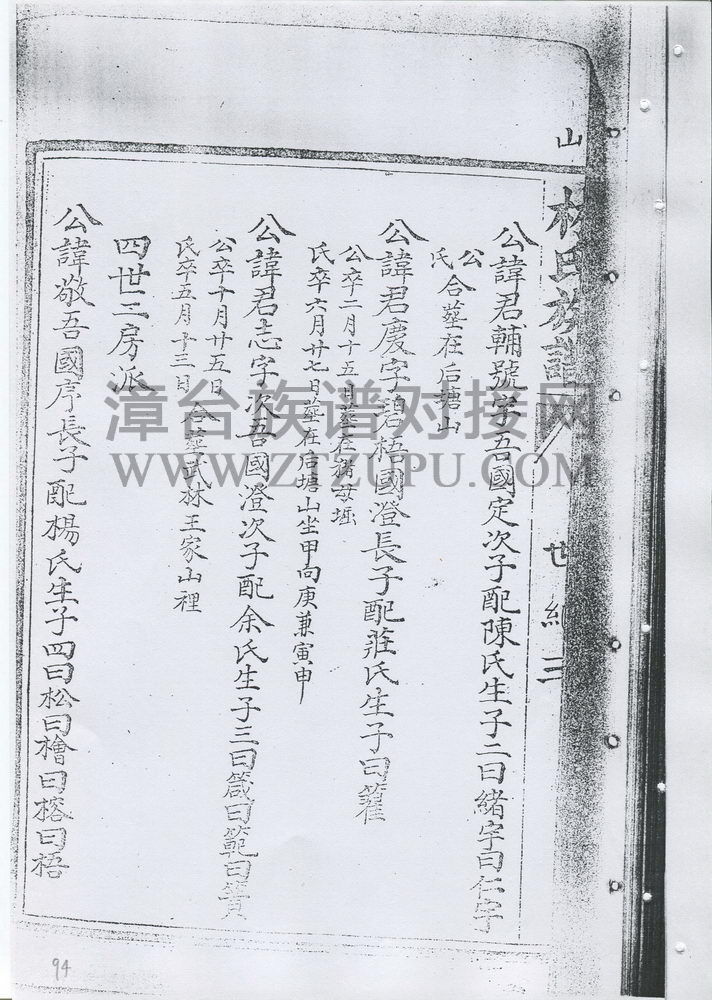 山
林氏族譜
世紀三
公諱君輔號岸吾國定次子配陳氏生子二曰緒字曰仁字
公氏合葬在后塘山
公諱君慶字碧梧國澄長子配莊氏生子曰籊
公卒二月十五日葬在
氏卒六月廿七日葬在后塘山坐甲向庚兼寅申
公諱君志字次吾國澄次子配余氏生子三曰箴曰範曰簣
公卒十月廿五日
氏卒五月十三日
合葬武林王家山裡
四世三房派
公諱敬吾國序長子配楊氏生子四曰松曰檜曰榕曰梧
94
漳台族谱对接网
WWW.ZTZUPU.COM